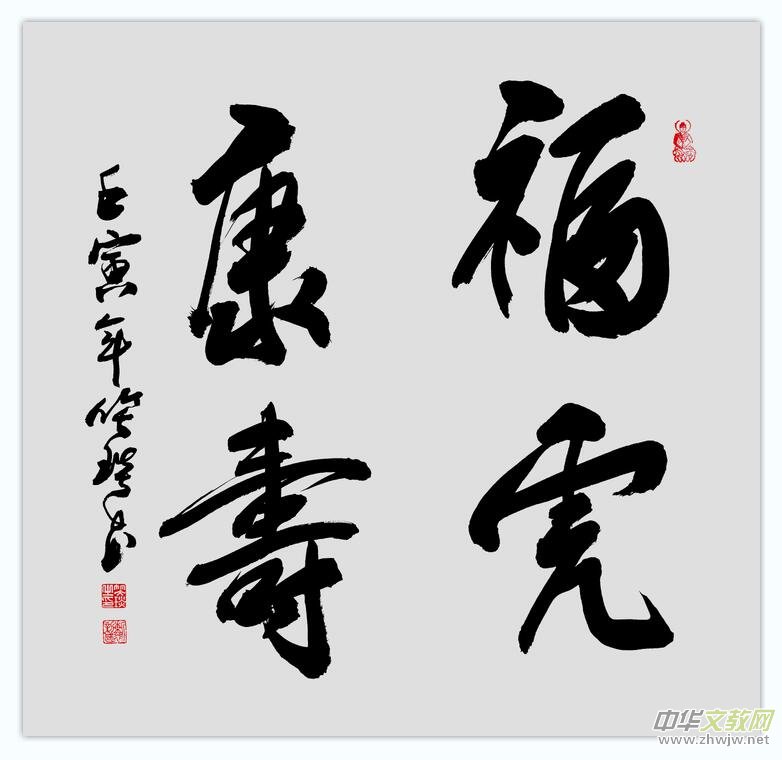 福虎
康寿
壬寅年
中华文教网
www.zhwjw.net